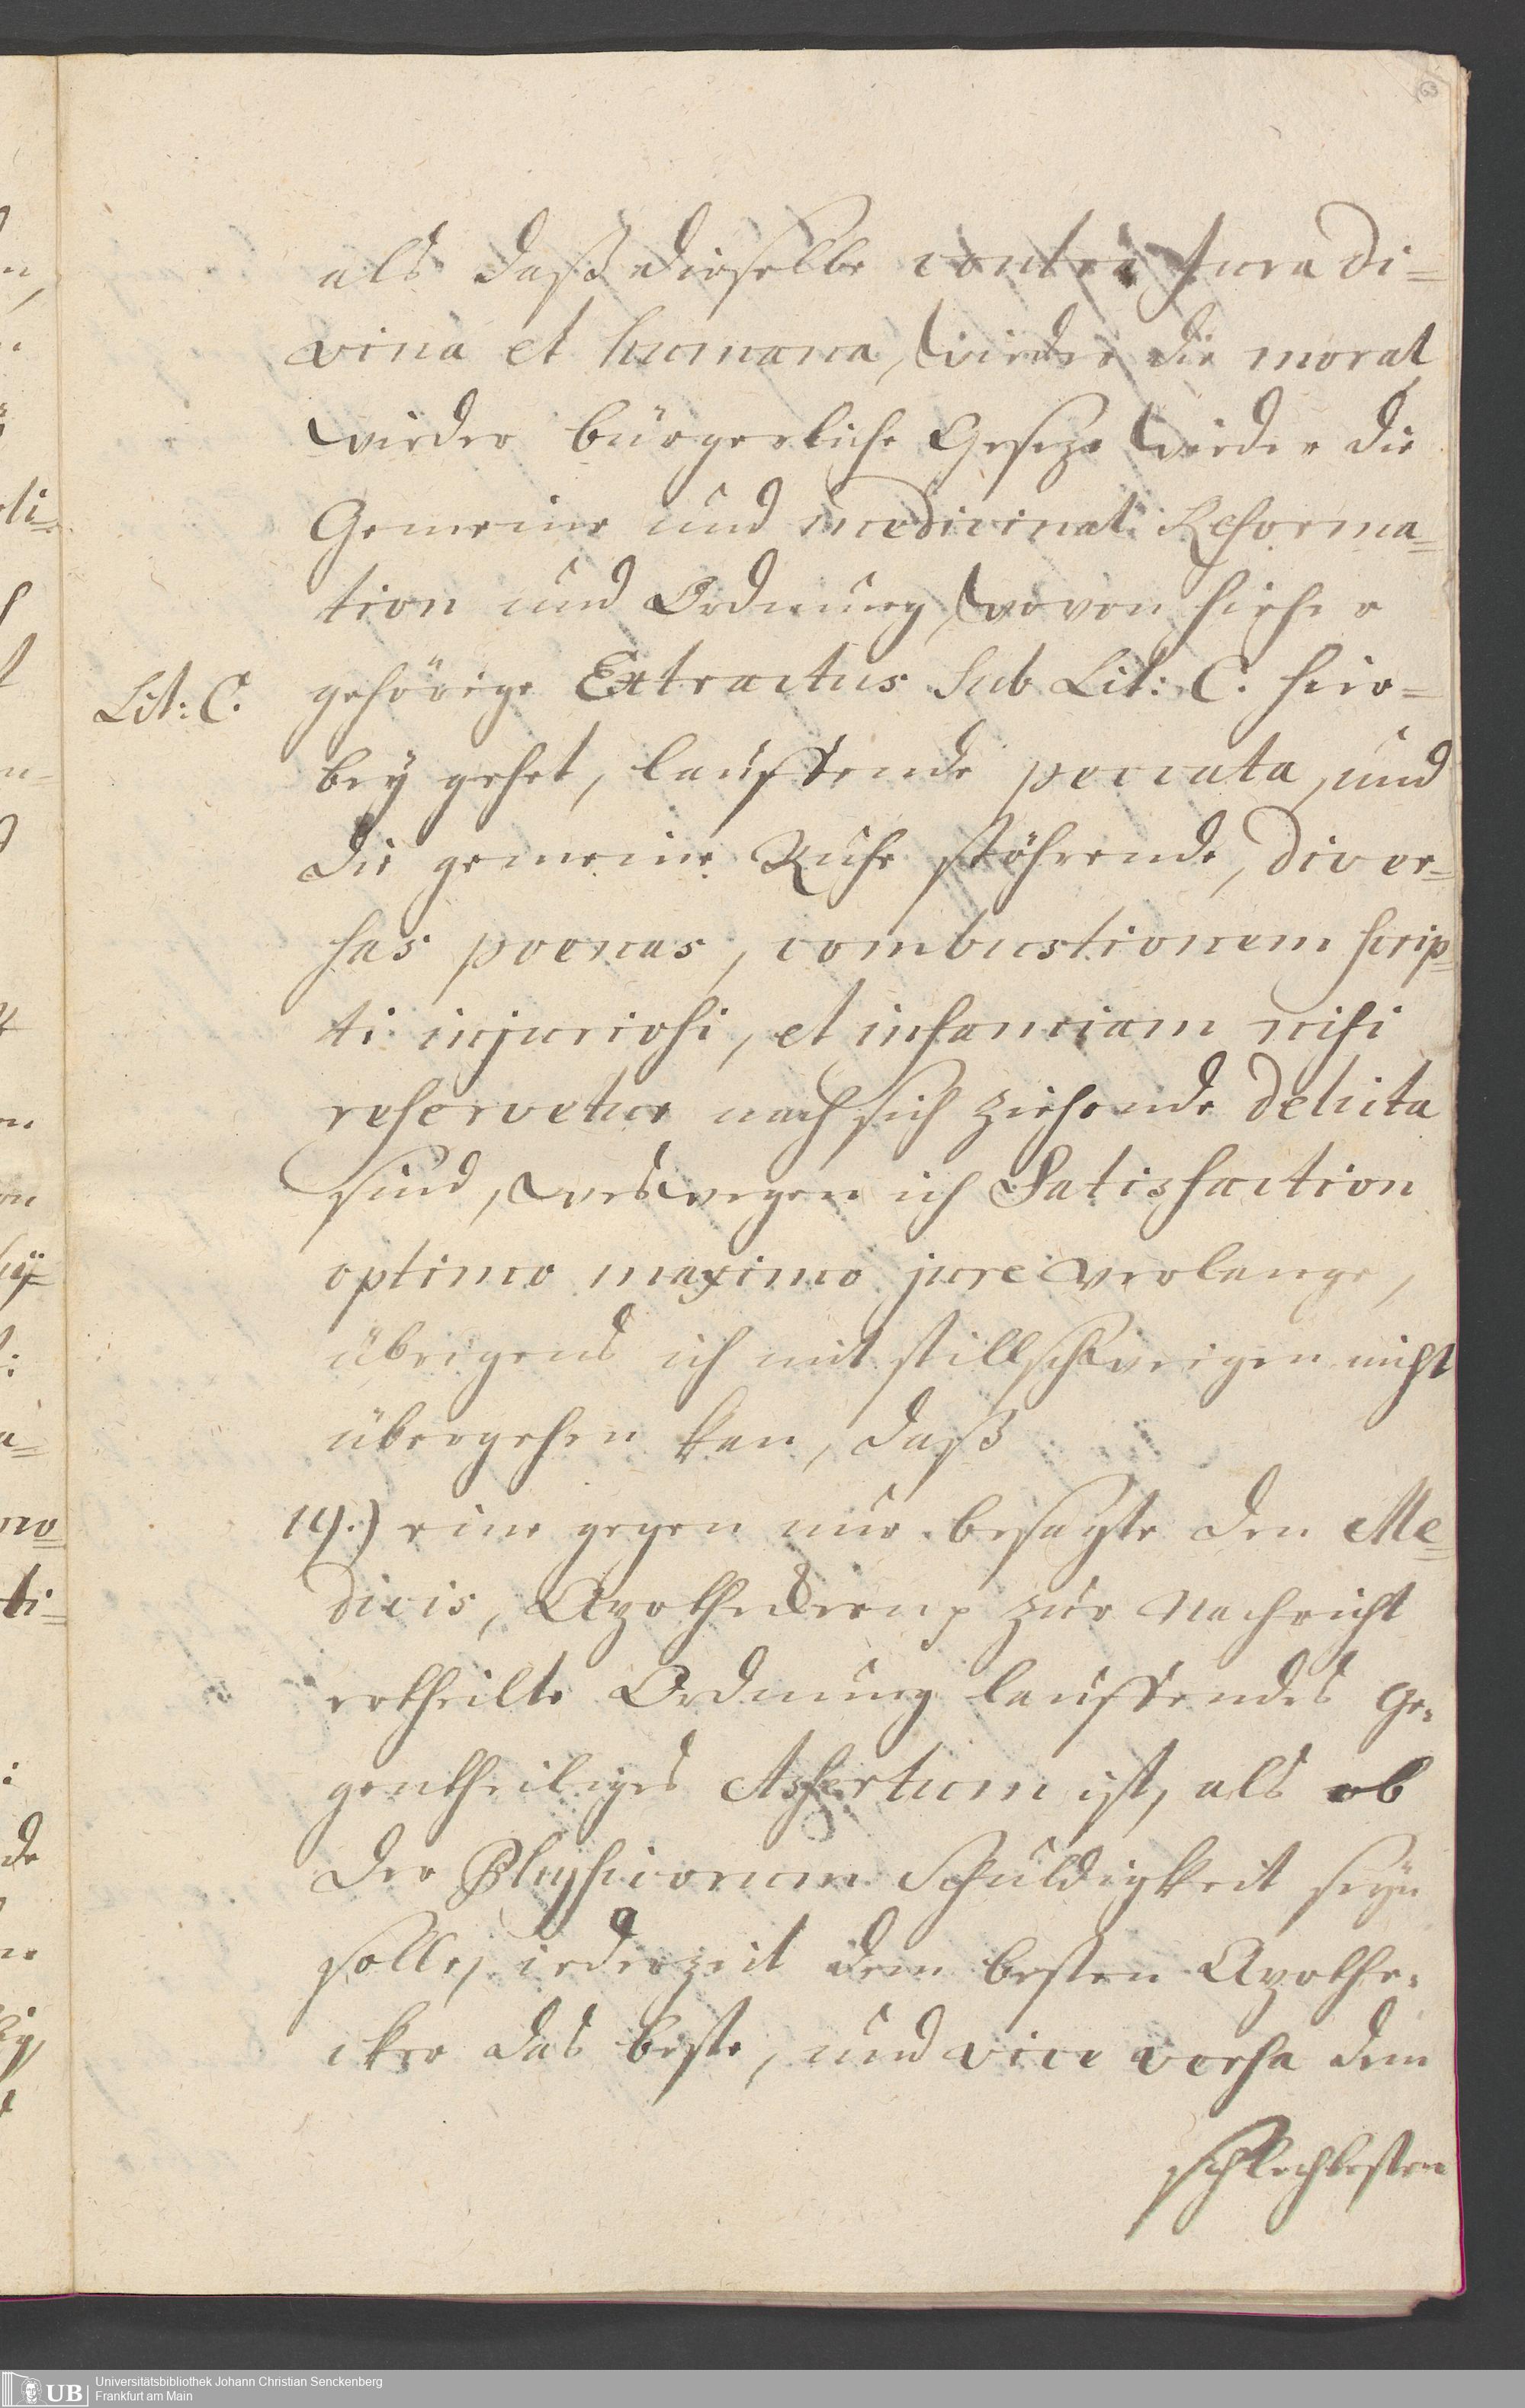 als daß dieselbe contra Jura di=
vina et humana, wieder die moral
wieder bürgerliche Geseze wieder die
Gemeine und medicinal Reforma=
tion und Ordnung, wovon hieher
Lit: C. gehörige Extractus sub Lit: C. hier=
bey gehet, lauffende peccata, und
die gemeine Ruhe stöhrende, diver=
sas poenas, combustionem scrip=
ti injuriosi, et infamiam nisi
reservetur nach sich ziehende delicta
sind, weswegen ich Satisfaction
optimo maximo jure verlange,
übrigens ich mit stillschweigen nicht
übergehen kan, daß
14.) eine gegen nur besagte den Me=
dicis, Apotheckern p zur Nachricht
ertheilte Ordnung lauffendes ge=
gentheiliges Assertum ist, als ob
der Physicorum Schuldigkeit seyn
solle, iederzeit dem besten Apothe=
cker das beste, und vice versa dem
schlechtesten
Universitätsbibliothek Johann Christian Senckenberg
Frankfurt am Main
UB